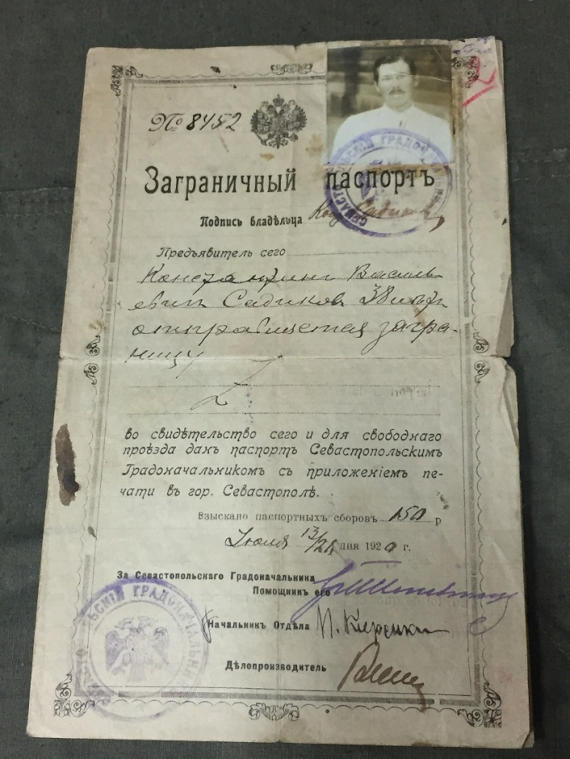 № 8452
Заграничный паспортъ
Подпись владѣльца
СЕВАСТОПОЛЬСКІЙ ГРАДОНАЧАЛЬНИКЪ
Предъявитель сего
Константинъ Василь
евич Садиков
отправляется загра-
ницу
во свидѣтельство сего и для свободнаго
проѣзда данъ паспортъ Севастопольскимъ
Градоначальникомъ съ приложеніемъ пе-
чати въ гор. Севастополѣ.
Взыскано паспортныхъ сборовъ 150 р
Іюля 13/26 дня 1920 г.
За Севастопольскаго Градоначальника
Помощникъ его
Начальникъ Отдѣла
Дѣлопроизводитель
СЕВАСТОПОЛЬСКІЙ ГРАДОНАЧАЛЬНИКЪ